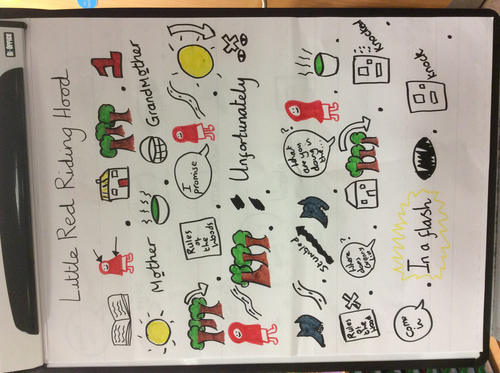 Little Red Riding Hood
1
Mother
GrandMother
Rules
of
the
Woods
I
promise
Unfortunately
Stumbled
What
are you
doing
in
the...
?
Rules
of the
Woods
Where
does
?
Knock
Come
in
In a flash
Knock